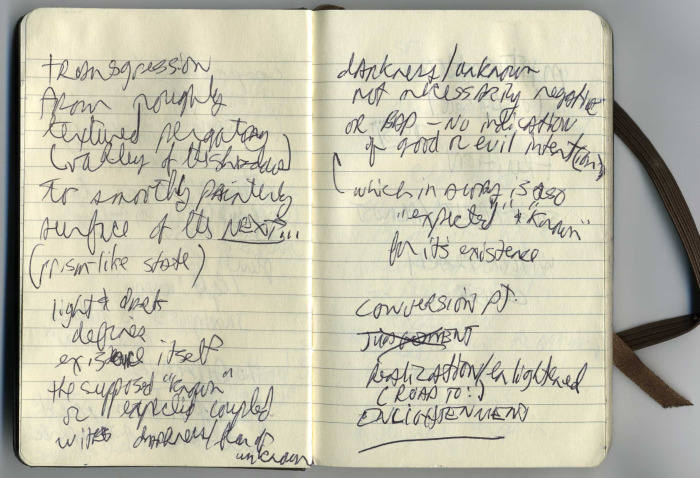 transgression
from roughly
textured purgatory
(valley of the shadows)
to smoothly painterly
surface of the NEXT...
(prism-like state)
light & dark
defines
existence itself
the supposed "known"
or expected coupled
with darkness/fear of
unknown
darkness/unknown
not necessarily negative
or BAD - No indication
of good or evil intent(ions)
which in a way is also
"expected" & "known"
for its existence
CONVERSION PT.
JUDGEMENT
Realization/enlightened
(ROAD TO:)
ENLIGHTENMENT